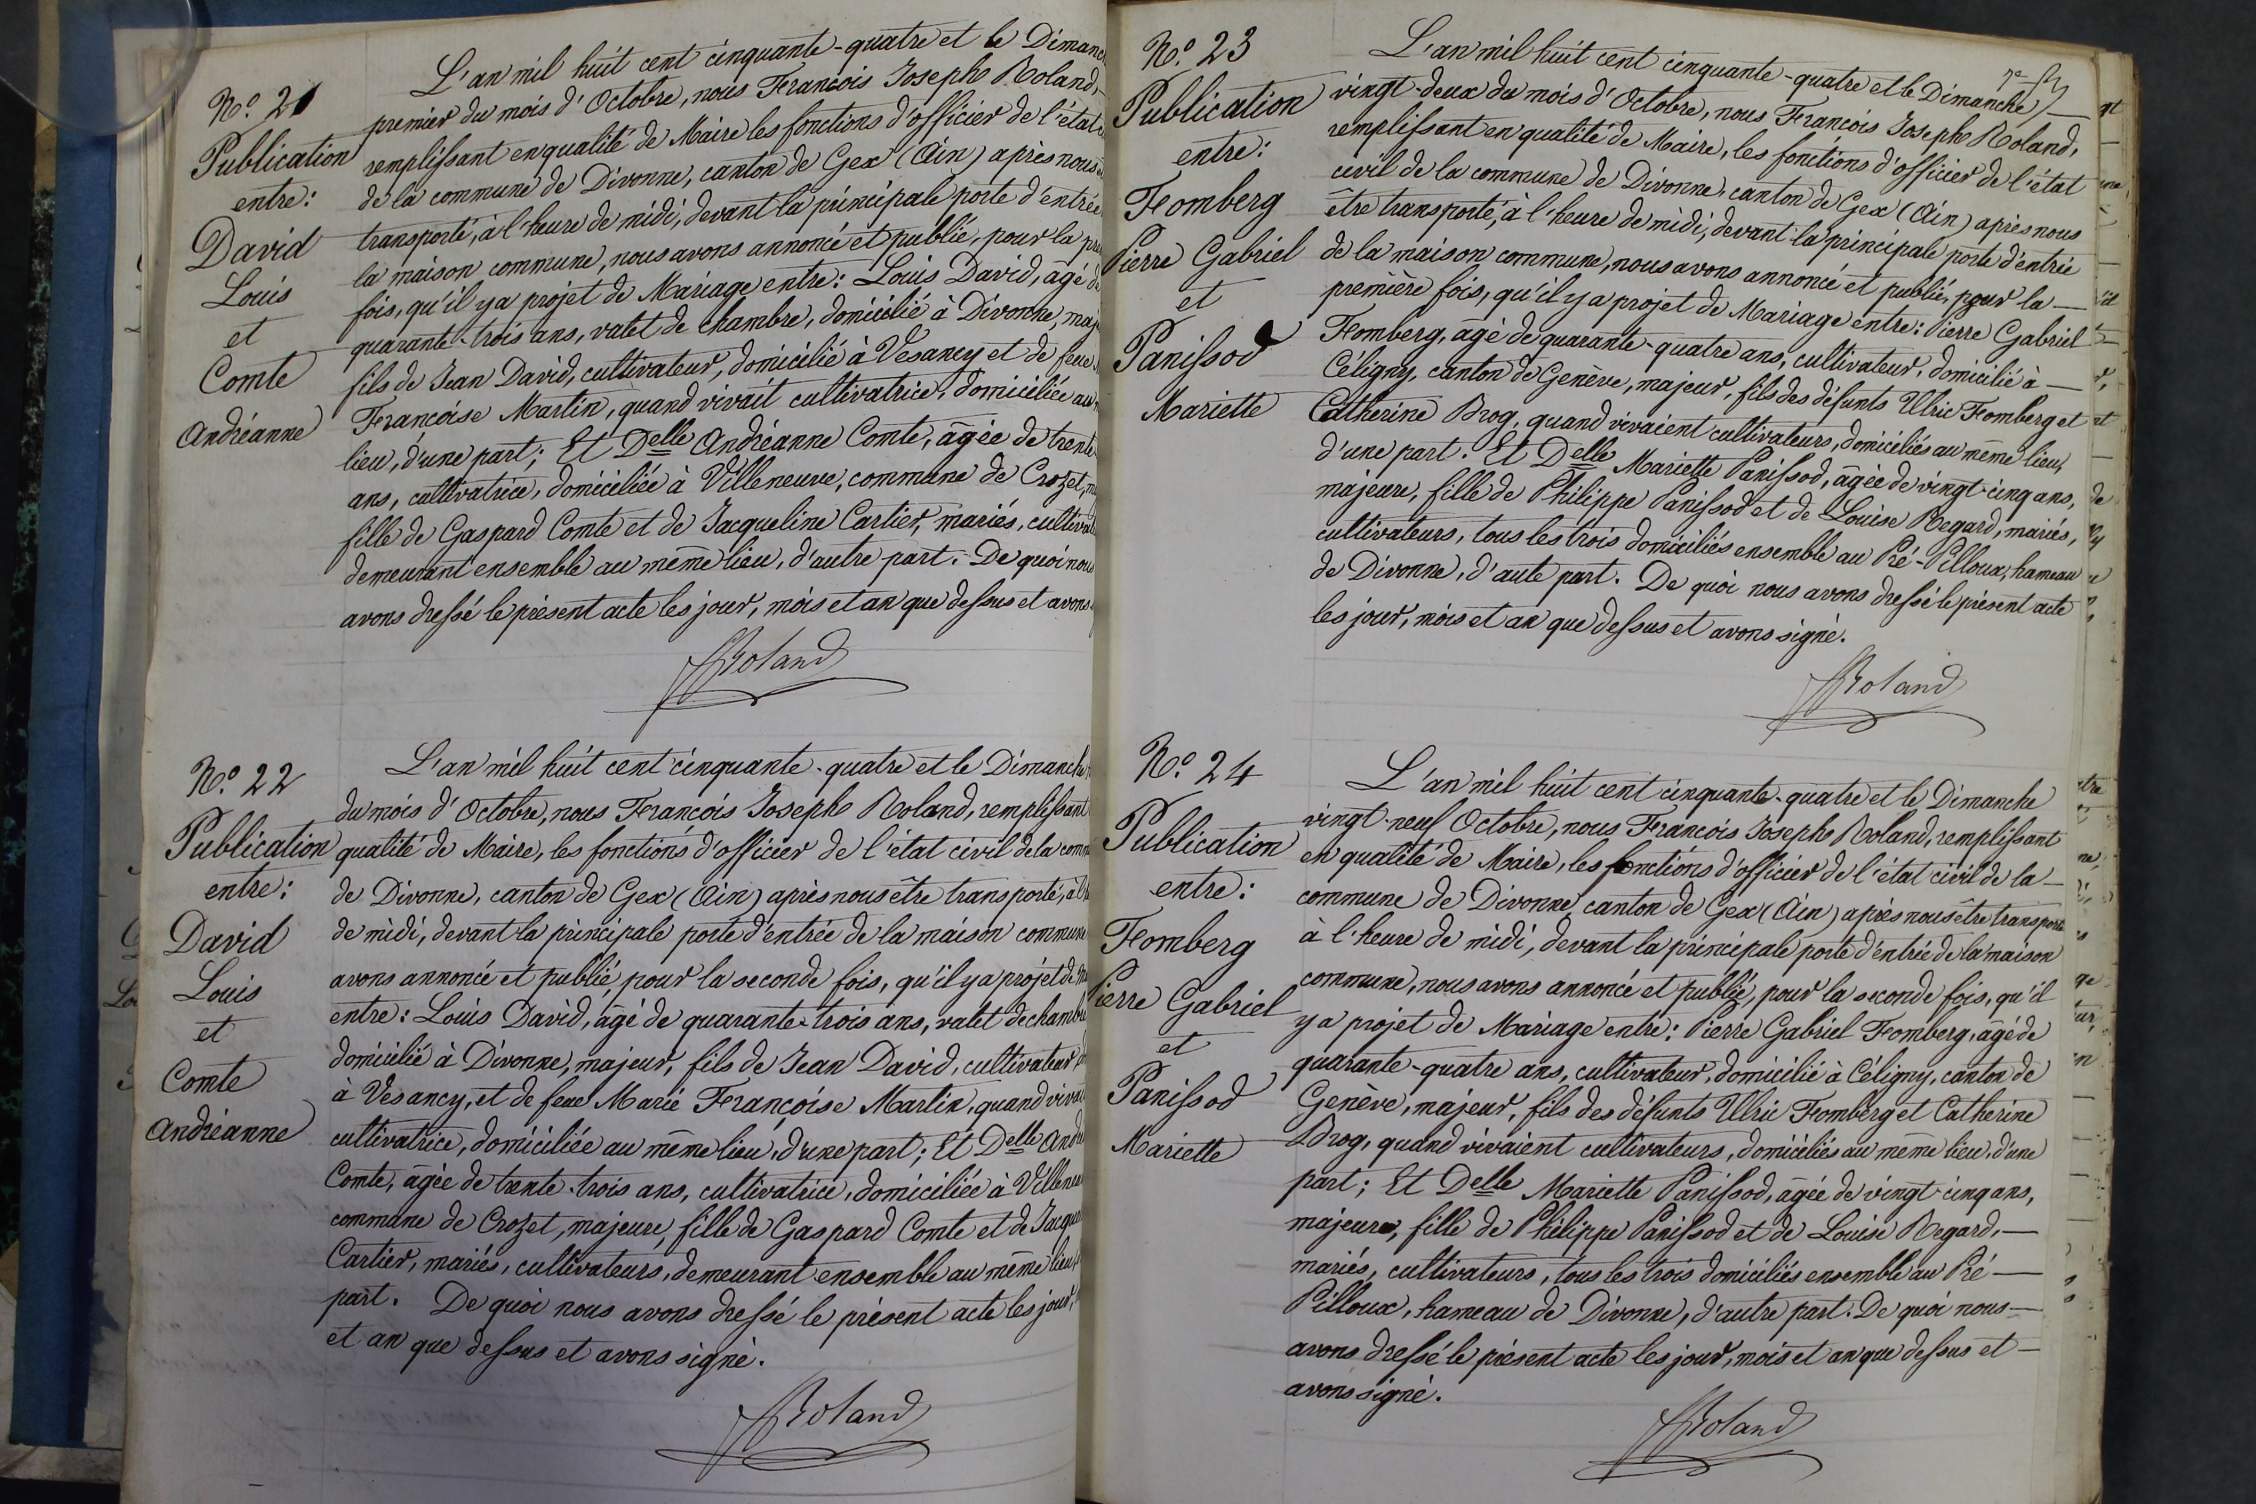 N.o 21
Publication
entre:
David
Louis
et
Comte
Andréanne
L'an mil huit cent cinquante-quatre et le Dimanc
premier du mois d'Octobre, nous François Joseph Roland,
remplissant en qualité de Maire les fonctions d'officier de l'état
de la commune de Divonne, canton de Gex (Ain) après nous
transporté, à l'heure de midi, devant la principale porte d'entrée
la maison commune, nous avons annoncé et publié, pour la pre
fois, qu'il y a projet de Mariage entre: Louis David, âgé de
quarante-trois ans, valet de chambre, domicilié à Divonne, maj
fils de Jean David, cultivateur, domicilié à Vesancy et de feue
Françoise Martin, quand vivait cultivatrice, domiciliée au
lieu, d'une part; Et Delle Andréanne Comte, âgée de trente
ans, cultivatrice, domiciliée à Villeneuve, commune de Crozet, m
fille de Gaspard Comte et de Jacqueline Cartier, mariés, cultivat
demeurant ensemble au même lieu, d'autre part. De quoi nous
avons dressé le présent acte les jour, mois et an que dessus et avons
Roland
N.o 22
Publication
entre:
David
Louis
et
Comte
Andréanne
L'an mil huit cent cinquante-quatre et le Dimanche
du mois d'Octobre, nous François Joseph Roland, remplissant
qualité de Maire, les fonctions d'officier de l'état civil de la comm
de Divonne, canton de Gex (Ain) après nous être transporté, à l'h
de midi, devant la principale porte d'entrée de la maison commune
avons annoncé et publié, pour la seconde fois, qu'il y a projet de Ma
entre: Louis David, âgé de quarante-trois ans, valet de chambre
domicilié à Divonne, majeur, fils de Jean David, cultivateur
à Vesancy, et de feue Marie Françoise Martin, quand vivai
cultivatrice, domiciliée au même lieu, d'une part; Et Delle André
Comte, âgée de trente-trois ans, cultivatrice, domiciliée à Villeneu
commune de Crozet, majeure, fille de Gaspard Comte et de Jacque
Cartier, mariés, cultivateurs, demeurant ensemble au même lieu,
part. De quoi nous avons dressé le présent acte les jour,
et an que dessus et avons signé.
Roland
N.o 23
Publication
entre:
Fomberg
Pierre Gabriel
et
Panissod
Mariette
L'an mil huit cent cinquante-quatre et le Dimanche
vingt-deux du mois d'Octobre, nous François Joseph Roland,
remplissant en qualité de Maire, les fonctions d'officier de l'état
civil de la commune de Divonne, canton de Gex (Ain) après nous
être transporté, à l'heure de midi, devant la principale porte d'entrée
de la maison commune, nous avons annoncé et publié, pour la
première fois, qu'il y a projet de Mariage entre: Pierre Gabriel
Fomberg, âgé de quarante-quatre ans, cultivateur, domicilié à
Céligny, canton de Genève, majeur, fils des défunts Ulric Fomberg et
Catherine Brog, quand vivaient cultivateurs, domiciliés au même lieu,
d'une part. Et Delle Mariette Panissod, âgée de vingt-cinq ans,
majeure, fille de Philippe Panissod et de Louise Regard, mariés,
cultivateurs, tous les trois domiciliés ensemble au Pré-Pilloux, hameau
de Divonne, d'aute part. De quoi nous avons dressé le présent acte
les jour, mois et an que dessus et avons signé.
Roland
N.o 24
Publication
entre:
Fomberg
Pierre Gabriel
et
Panissod
Mariette
L'an mil huit cent cinquante-quatre et le Dimanche
vingt-neuf Octobre, nous François Joseph Roland, remplissant
en qualité de Maire, les fonctions d'officier de l'état civil de la
commune de Divonne, canton de Gex (Ain) après nous être transporté
à l'heure de midi, devant la principale porte d'entrée de la maison
commune, nous avons annoncé et publié, pour la seconde fois, qu'il
y a projet de Mariage entre: Pierre Gabriel Fomberg, âgé de
quarante-quatre ans, cultivateur, domicilié à Céligny, canton de
Genève, majeur, fils des défunts Ulric Fomberg et Catherine
Brog, quand vivaient cultivateurs, domiciliés au même lieu, d'une
part; Et Delle Mariette Panissod, âgée de vingt-cinq ans,
majeure, fille de Philippe Panissod et de Louise Regard,
mariés, cultivateurs, tous les trois domiciliés ensemble au Pré
Pilloux, hameau de Divonne, d'autre part. De quoi nous
avons dressé le présent acte les jour, mois et an que dessus et
avons signé.
Roland